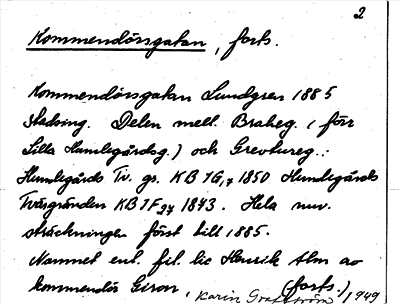 2
Kommendörsgatan, forts.
Kommendörsgatan Lundgren 1885
Stadsing. Delen mell. Braheg. (förr
Lilla Humlegårdsg.) och Grevtureg.:
Humlegårds Tv. gr. KB 1G,7 1850 Humlegårds
Tvärgränden KB 1F 27 1843. Hela nuv.
sträckningen först till 1885.
Namnet enl. fil. lic Henrik Alm av
kommendör Giron. (forts.)
Karin 1949